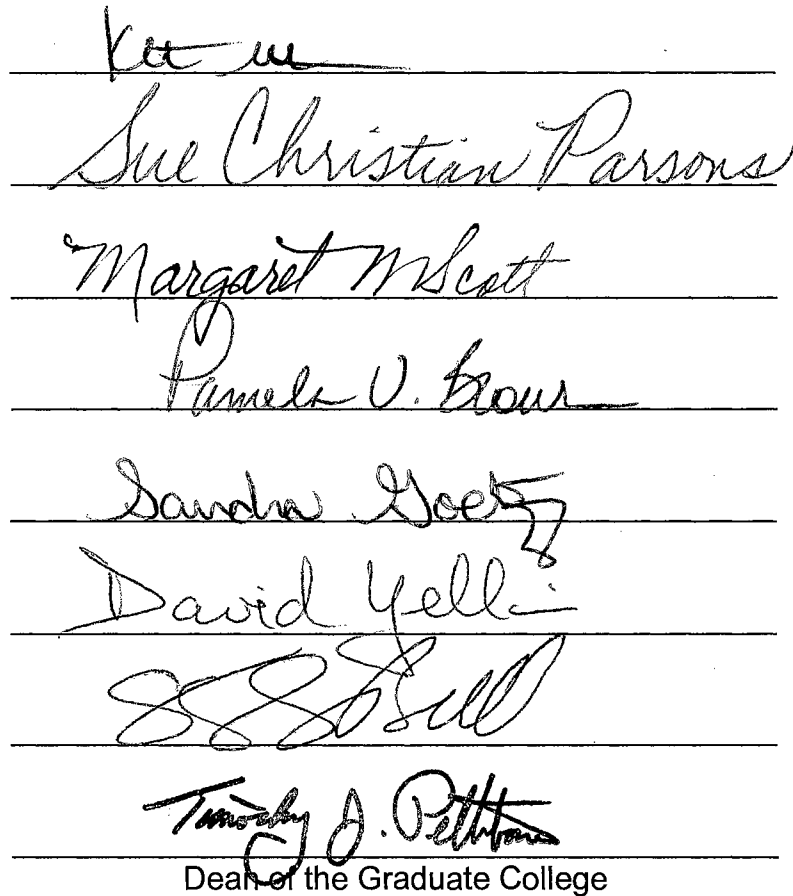 Sue Christian Parsons
Margaret M Scott
Pamela U. Brown
Sandra Goetz
David Yellin
Timothy J. Pettibone
Dean of the Graduate College